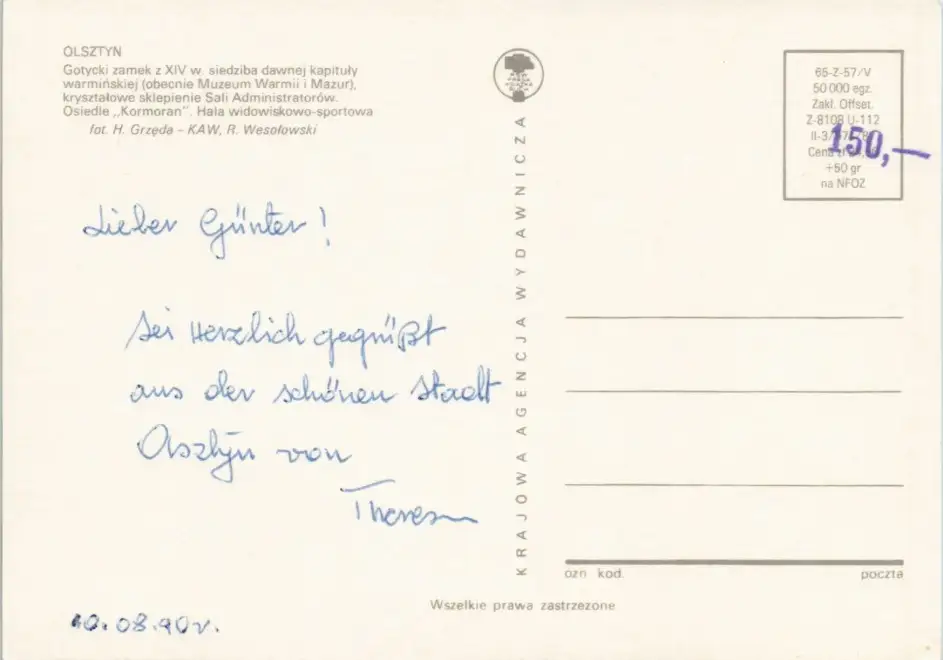 OLSZTYN
Gotycki zamek z XIV w. siedziba dawnej kapituły
warmińskiej (obecnie Muzeum Warmii i Mazur),
kryształowe sklepienie Sali Administratorów.
Osiedle „Kormoran”. Hala widowiskowo-sportowa
fot. H. Grzęda – KAW, R. Wesołowski
Lieber Günter!
Sei Herzlich gegrüßt
aus der schönen Stadt
Olsztyn von
10.08.90r.
KRAJOWA AGENCJA WYDAWNICZA
65-Z-57/V
50 000 egz.
Zakł. Offset.
Z-8108 U-112
150,—
Cena zł
+50 gr
na NFOZ
ozn kod.
poczta
Wszelkie prawa zastrzeżone